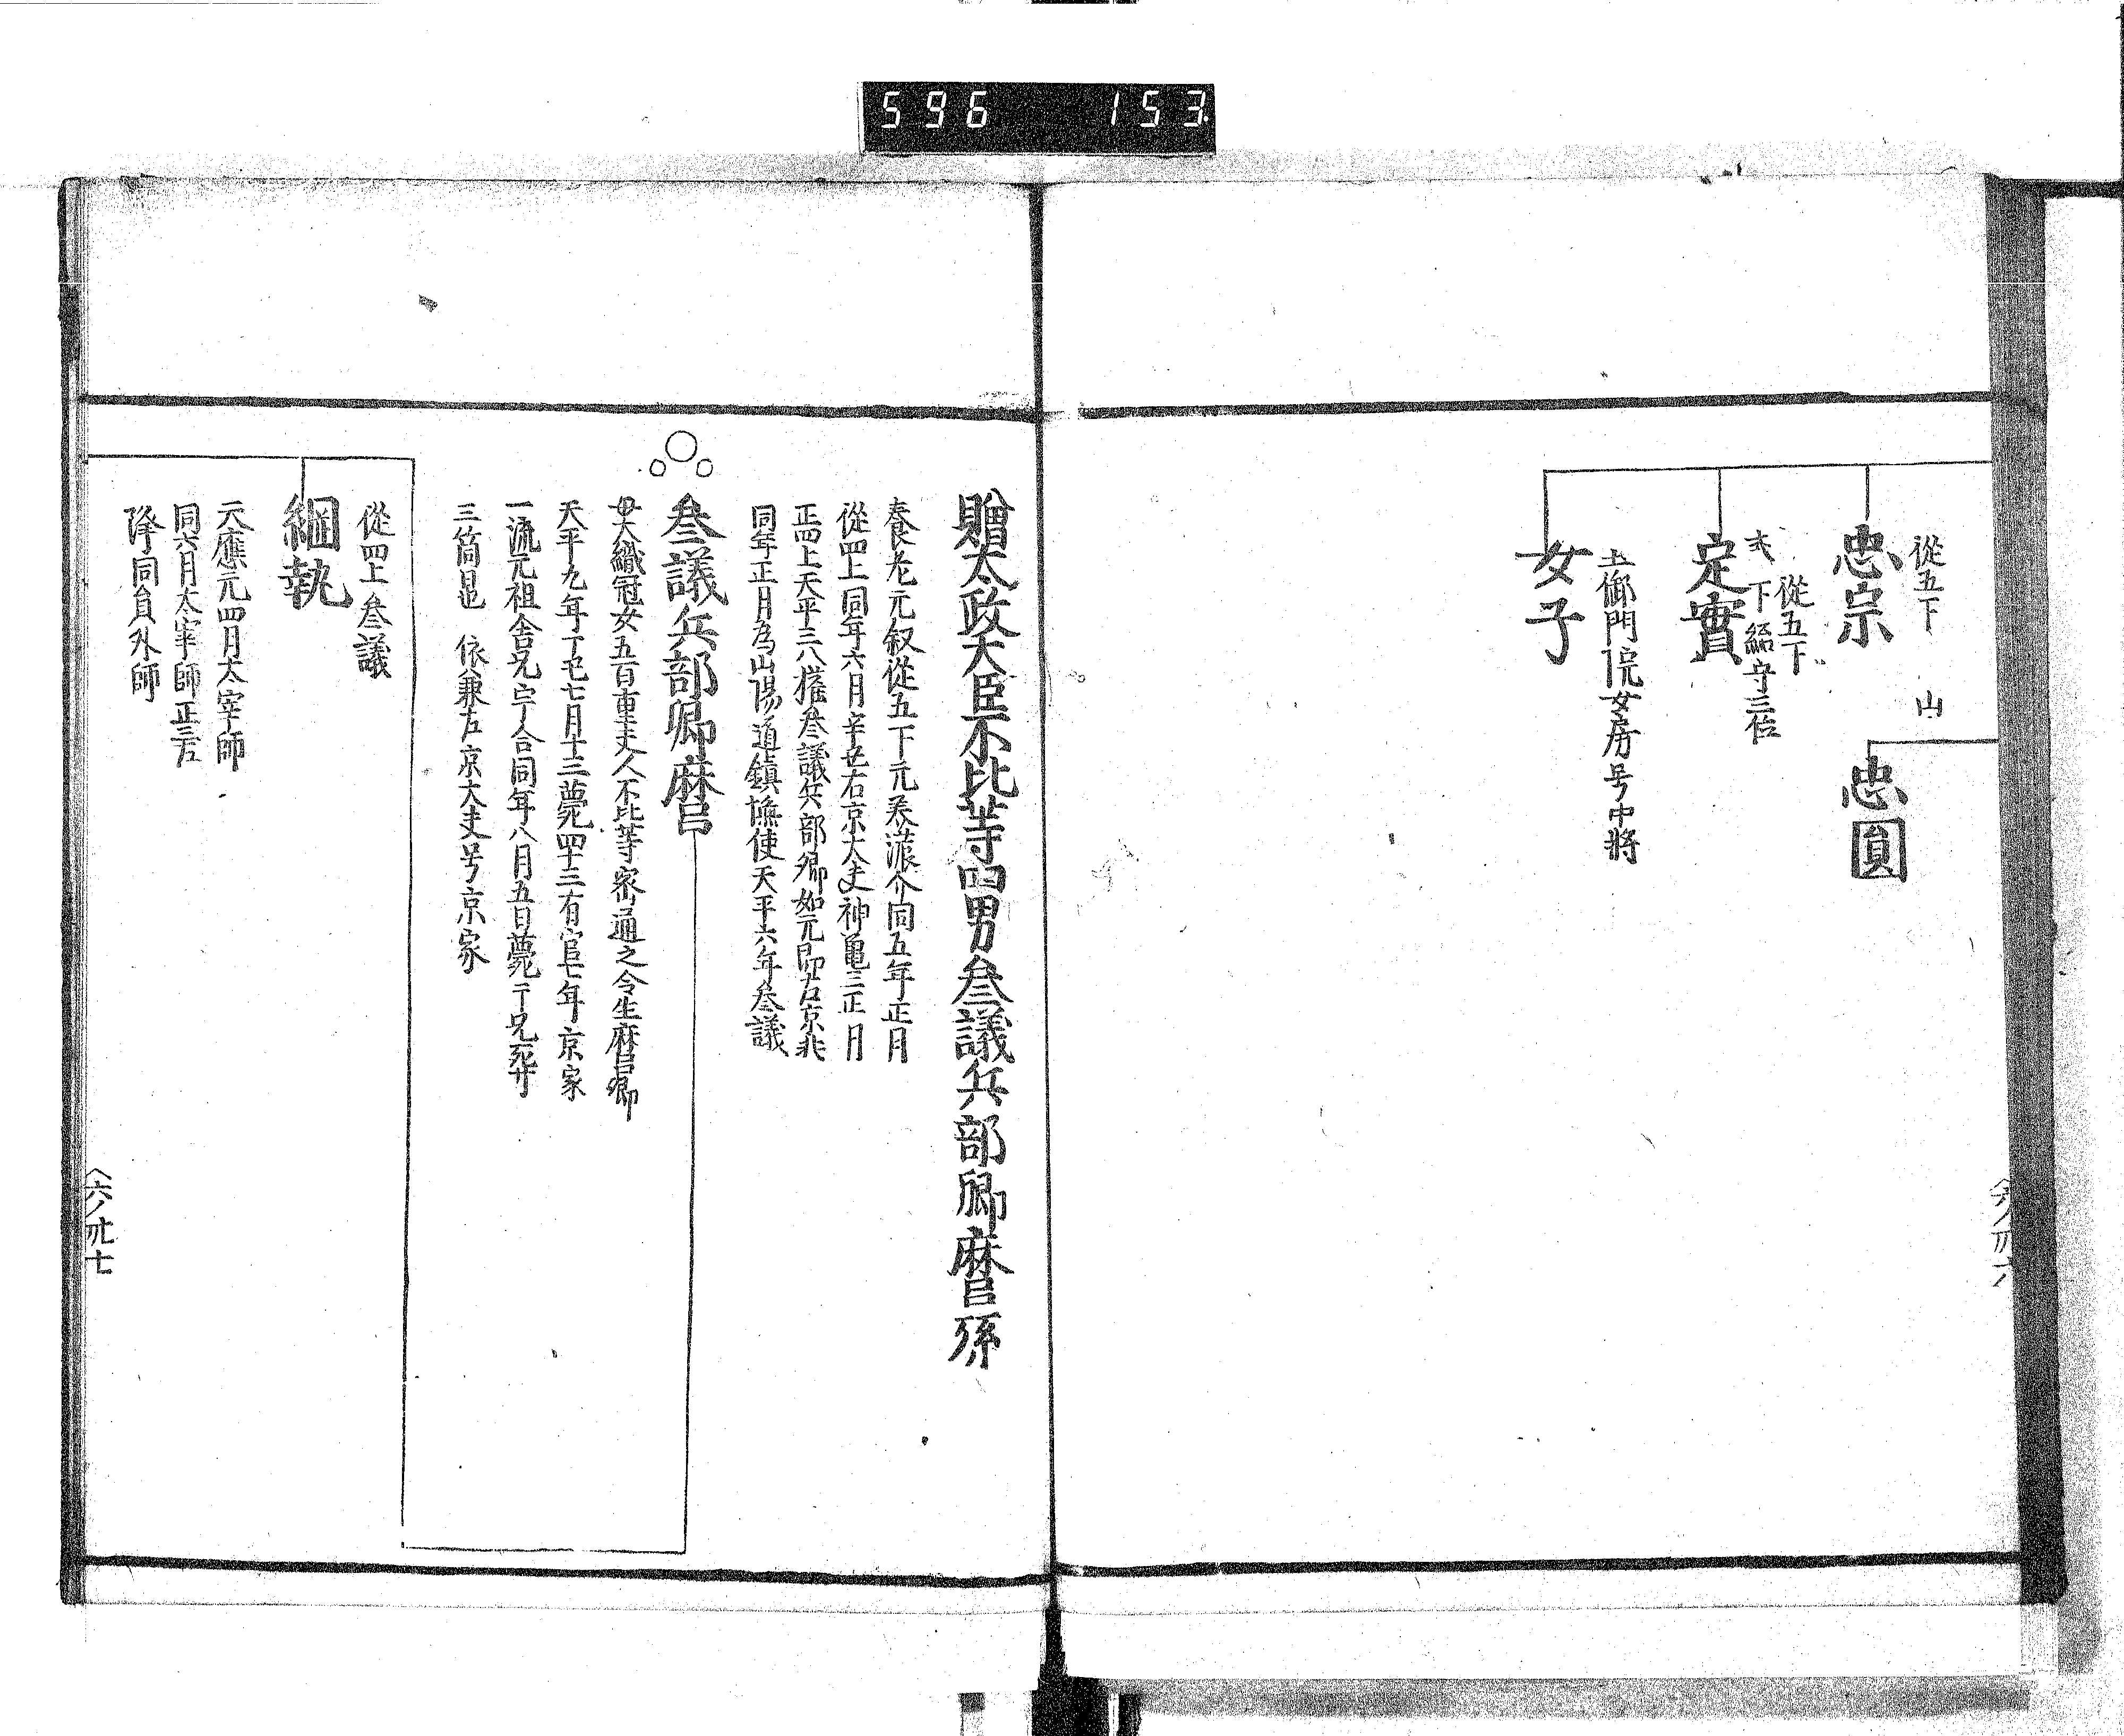 596 153
從五下 山
忠宗
忠圓
從五下
下総守三位
定實
土御門院女房号中將
女子
贈太政大臣不比等四男叅議兵部卿麿孫
養老元叙從五下元美濃介同五年正月
從四上同年六月辛丑右京大夫神亀三正月
正四上天平三八擢叅議兵部卿如元
同年正月為山陽道鎮撫使天平六年叅議
叅議兵部卿麿
母大織冠女五百重夫人不比等密通之令生麿卿
天平九年丁丑七月十三薨四十三有官七年京家
一流元祖舎兄宇合同年八月五日薨
三箇 依兼左京大夫号京家
從四上叅議
綱執
天應元四月太宰師
同六月太宰師正三左
降同員外師
六ノ卅七